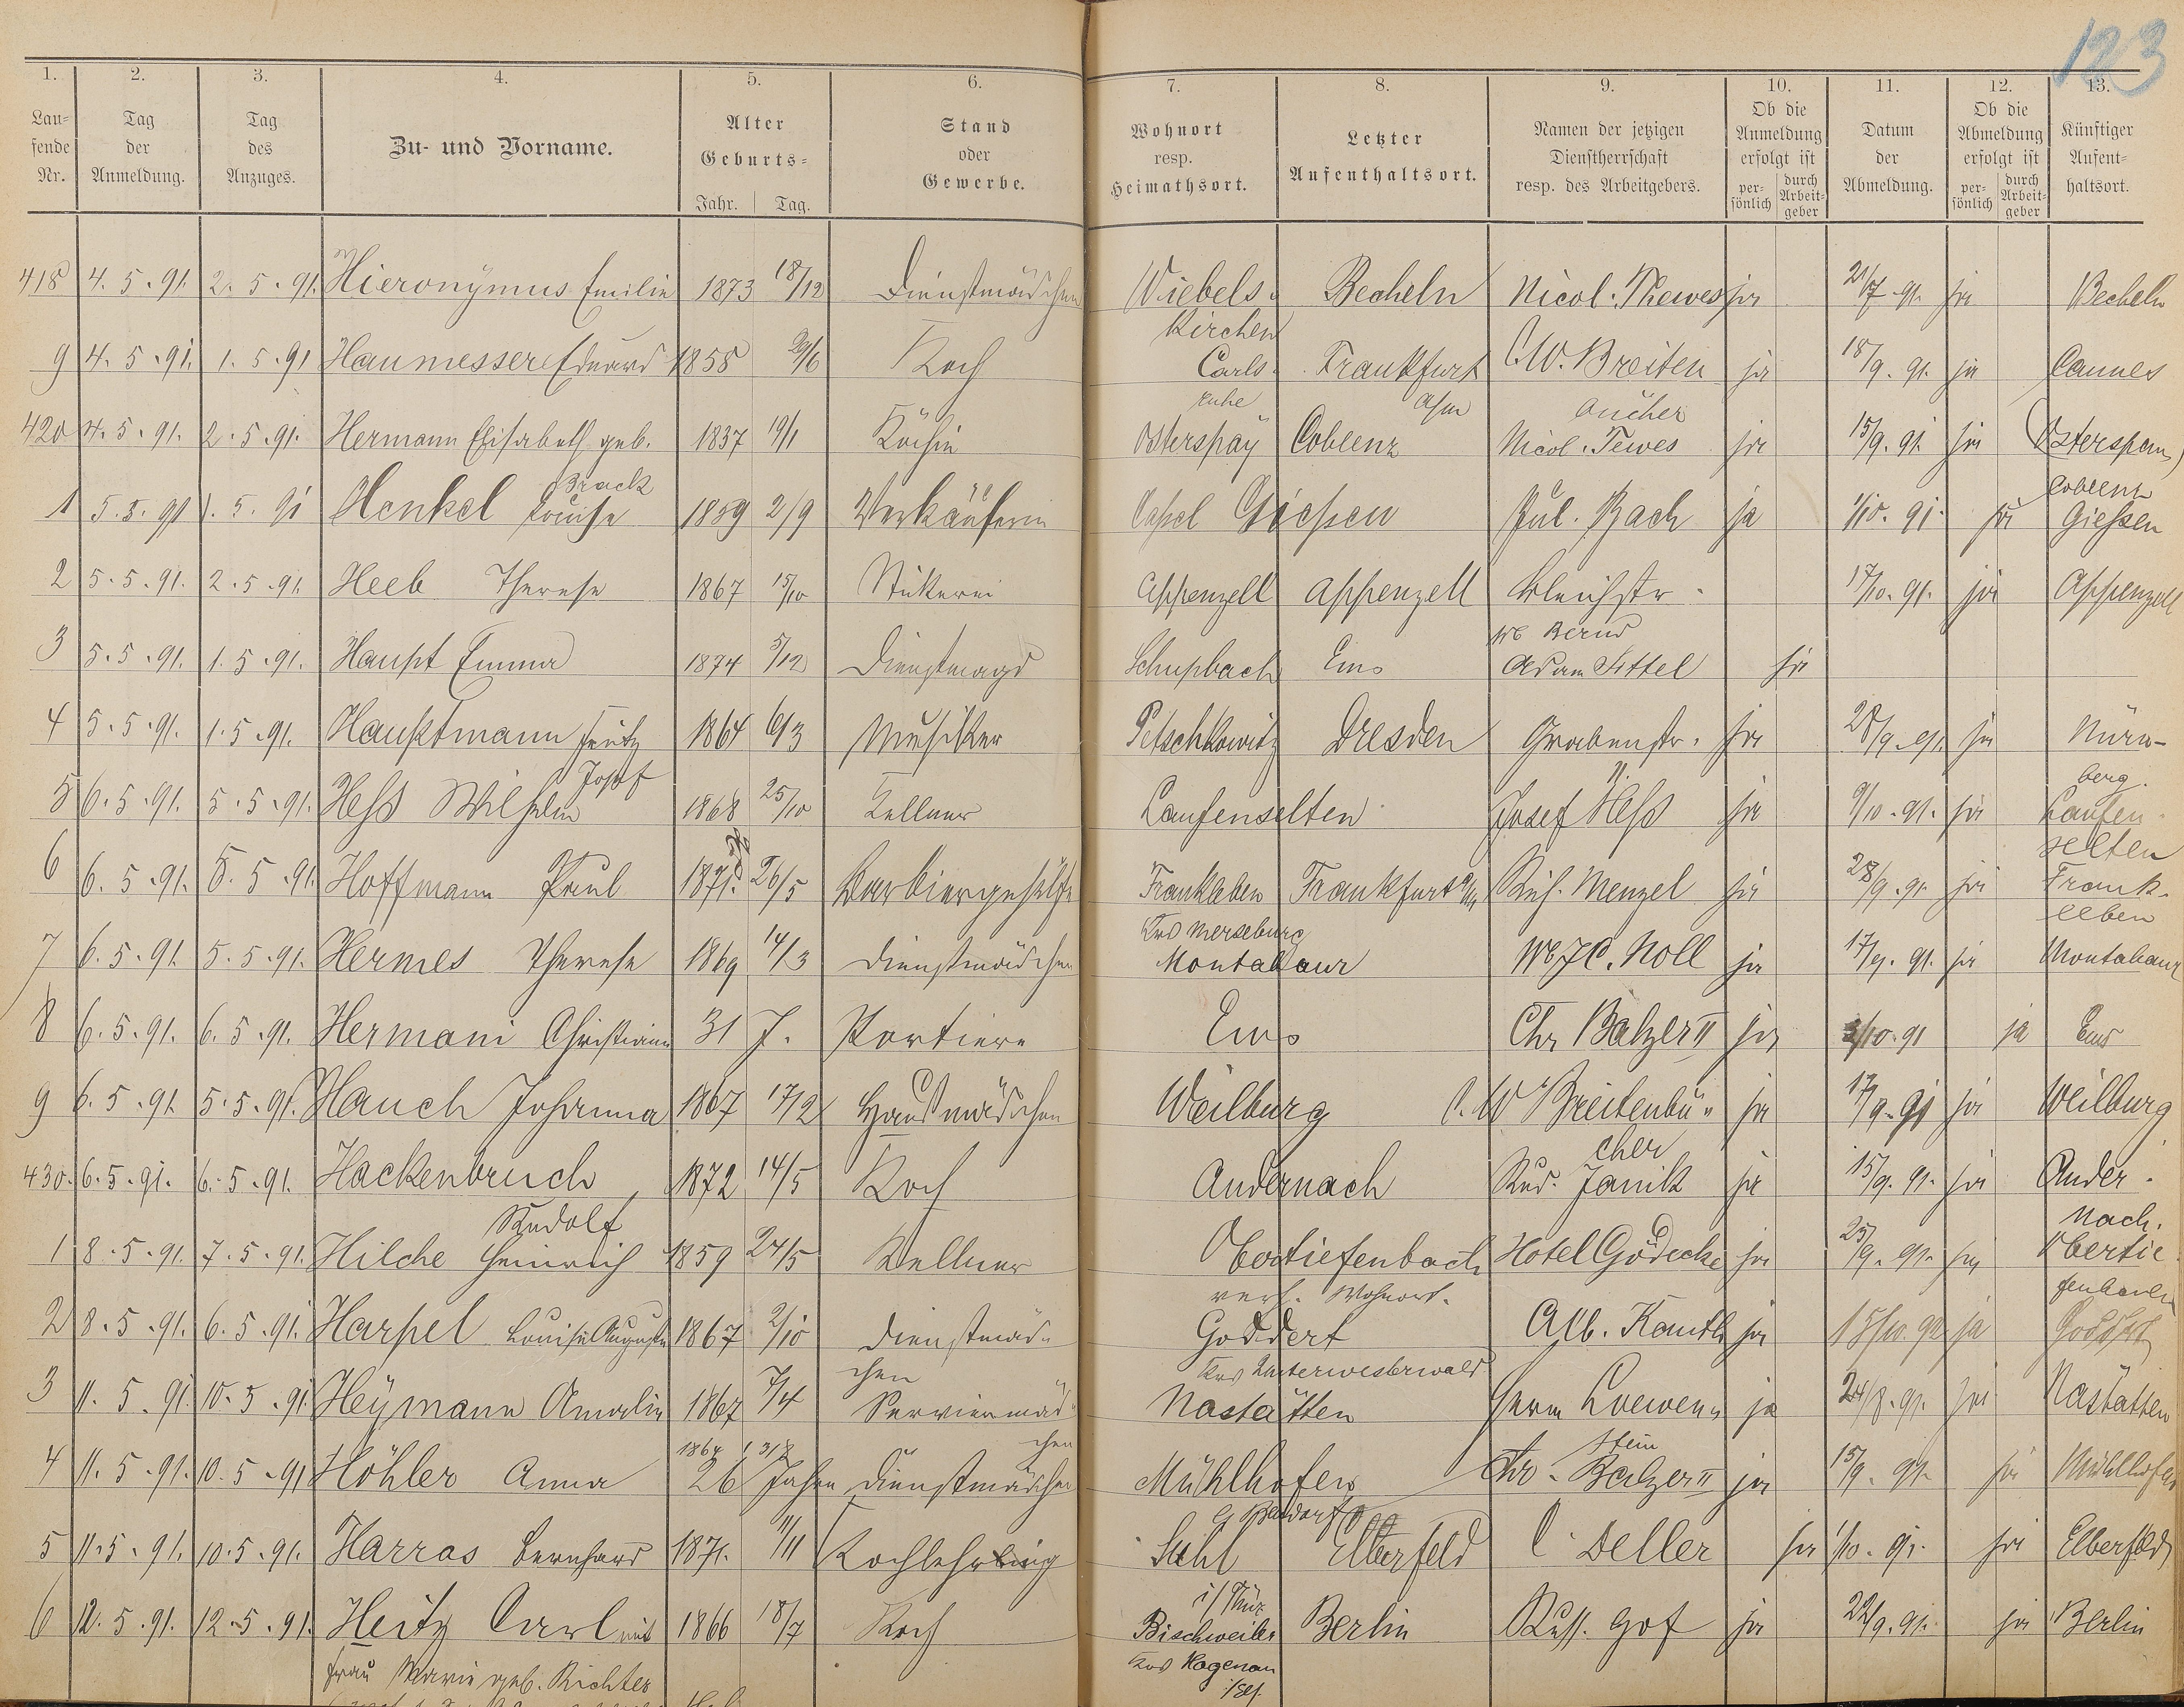 123
1. 2. 3. 4. 5. 6. 7. 8. 9. 10. 11. 12. 13.
Laufende Nr. Tag der Anmeldung. Tag des Anzuges. Zu- und Vorname. Alter Geburts- Jahr. Tag. Stand oder Gewerbe. Wohnort resp. Heimathsort. Letzter Aufenthaltsort. Namen der jetzigen Dienstherrschaft resp. des Arbeitgebers. Ob die Anmeldung erfolgt ist persönlich durch Arbeitgeber Datum der Abmeldung. Ob die Abmeldung erfolgt ist persönlich durch Arbeitgeber Künftiger Aufenthaltsort.
418 4. 5. 91. 2. 5. 91. Hieronymus Emilie 1873 18/12 Dienstmädchen Wiebels- Becheln Nicol. Thewes ja 21/7 91. ja Becheln
kirchen
9 4. 5. 91. 1. 5. 91 Haumesser Eduard 1858 29/6 Koch Carls- Frankfurt C. W. Breiten ja 18/9. 91. ja Cannes
ruhe a/m bücher
420 4. 5. 91. 2. 5. 91. Hermann Elisabeth geb. 1837 19/1 Köchin Osterspay Coblenz Nicol. Tewes ja 15/9. 91. ja Osterspay
Brack Coblenz
1 5. 5. 91 1. 5. 91 Henkel Louise 1859 2/9 Verkäuferin Cassel Giessen Jul. Bach ja 1/10. 91. ja Giessen
2 5. 5. 91. 2. 5. 91. Heeb Therese 1867 15/10 Stickerei Appenzell Appenzell Bleichstr. 17/10. 91. ja Appenzell
Wb Bernd
3 5. 5. 91. 1. 5. 91. Haupt Emma 1874 5/12 Dienstmagd Schupbach Ems Adam Sittel ja
4 5. 5. 91. 1. 5. 91. Hauptmann Fritz 1864 6/3 Musiker Petschkowitz Dresden Grabenstr. ja 28/9. 91. ja Nürn-
Josef berg.
5 6. 5. 91. 5. 5. 91. Hess Wilhelm 1868 25/10 Kellner Laufenselten Josef Hess ja 9/10. 91. ja Laufen-
selten
6 6. 5. 91. 5. 5. 91. Hoffmann Paul 1871. 26/5 Barbiergehülfe Frankleben Frankfurt a/m Rud. Menzel ja 28/9. 91. ja Frank-
Krs Merseburg leben
7 6. 5. 91. 5. 5. 91. Hermes Therese 1869 14/3 Dienstmädchen Montabaur Wb J C. Noll ja 17/9. 91. ja Montabaur
8 6. 5. 91. 6. 5. 91. Hermani Christiane 31 J. Portiere Ems Chr Balzer II ja 3/10. 91 ja Ems
9 6. 5. 91. 5. 5. 91. Hauch Johanna 1867 17/12 Hausmädchen Weilburg C. W Breitenbü- ja 17/9. 91 ja Weilburg
cher
430. 6. 5. 91. 6. 5. 91. Hackenbruch 1872 14/5 Koch Andernach Rud. Janik ja 15/9. 91. ja Ander-
Rudolf nach.
1 8. 5. 91. 7. 5. 91. Hilche Heinrich 1859 24/5 Kellner Obertiefenbach Hotel Gödecke ja 25/9. 91. ja Obertie-
verh. Wohnort. fenbach
2 8. 5. 91. 6. 5. 91. Harpel Louise Auguste 1867 2/10 Dienstmäd- Goddert Alb. Kauth ja 15/10. 92 ja Goddert
chen Krs Unterwesterwald
3 11. 5. 91. 10. 5. 91. Heymann Amalie 1867 7/4 Serviermäd- Nastätten Herm Loewen- ja 24/8. 91. ja Nastätten
chen stein
1864 31/8
4 11. 5. 91. 10. 5. 91 Höhler Anna 26 Jahre Dienstmädchen Mühlhofen Chr. Balzer II ja 15/9. 91. ja Mühlhofen
5 11. 5. 91. 10. 5. 91. Harras Bernhard 1871. 11/11 Kochlehrling Suhl Elberfeld C Deller ja 1/10. 91. ja Elberfeld
i/Thür
6 12. 5. 91. 12. 5. 91. Heitz Carl mit 1866 18/7 Koch Bischweiler Berlin Russ. Hof ja 22/9. 91. ja Berlin
Frau Marie geb. Richter Krs Hagenau
i/Els.